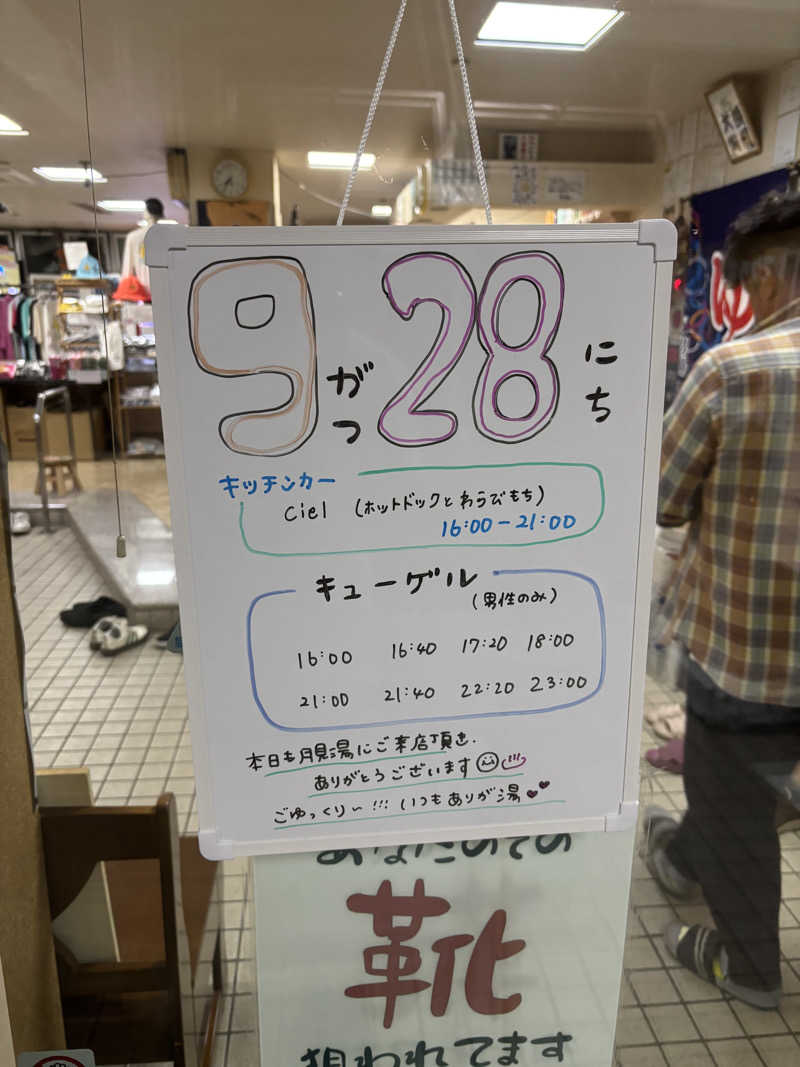 9がつ28にち
キッチンカー
Ciel (ホットドックとわらびもち)
16:00-21:00
キューゲル
(男性のみ)
16:00 16:40 17:20 18:00
21:00 21:40 22:20 23:00
本日も月見湯にご来店頂き、
ありがとうございます
ごゆっくり〜!!! いつもありが湯
あなたのその
靴
狙われてます
ゆ